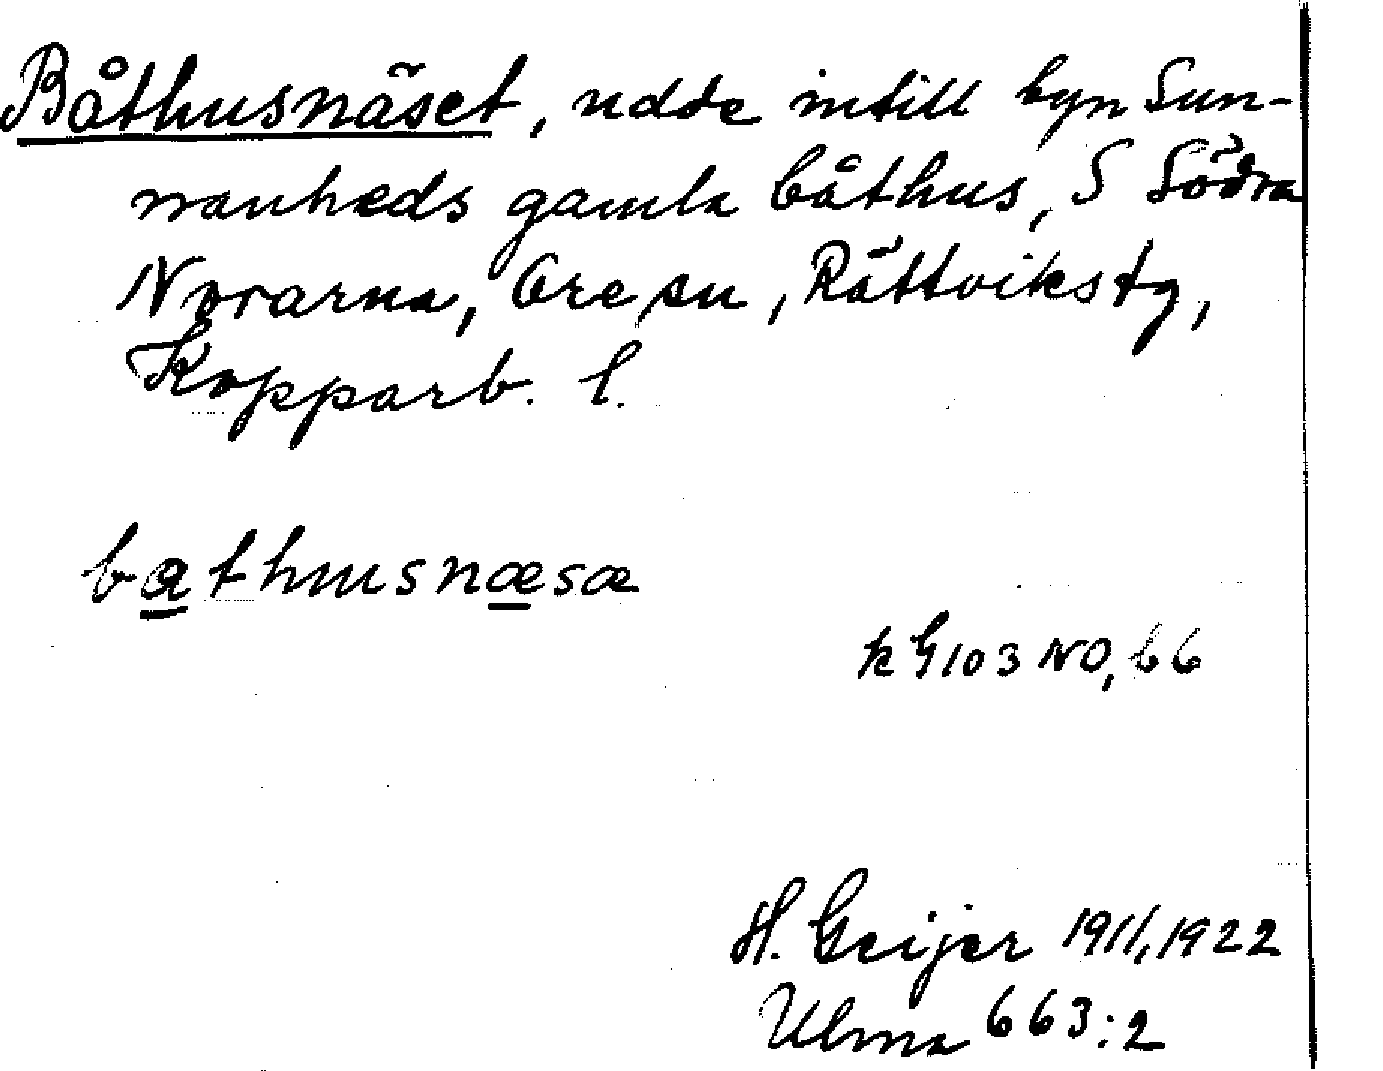 Båthusnäset, udde intill byn Sun-
nanheds gamla båthus, S Södra
Norarna, Ore sn, Rättviks tg,
Kopparb. l.
bathusnæsæ
k G103 NO, b6
H. Geijer 1911, 1922
Ulma 663:2